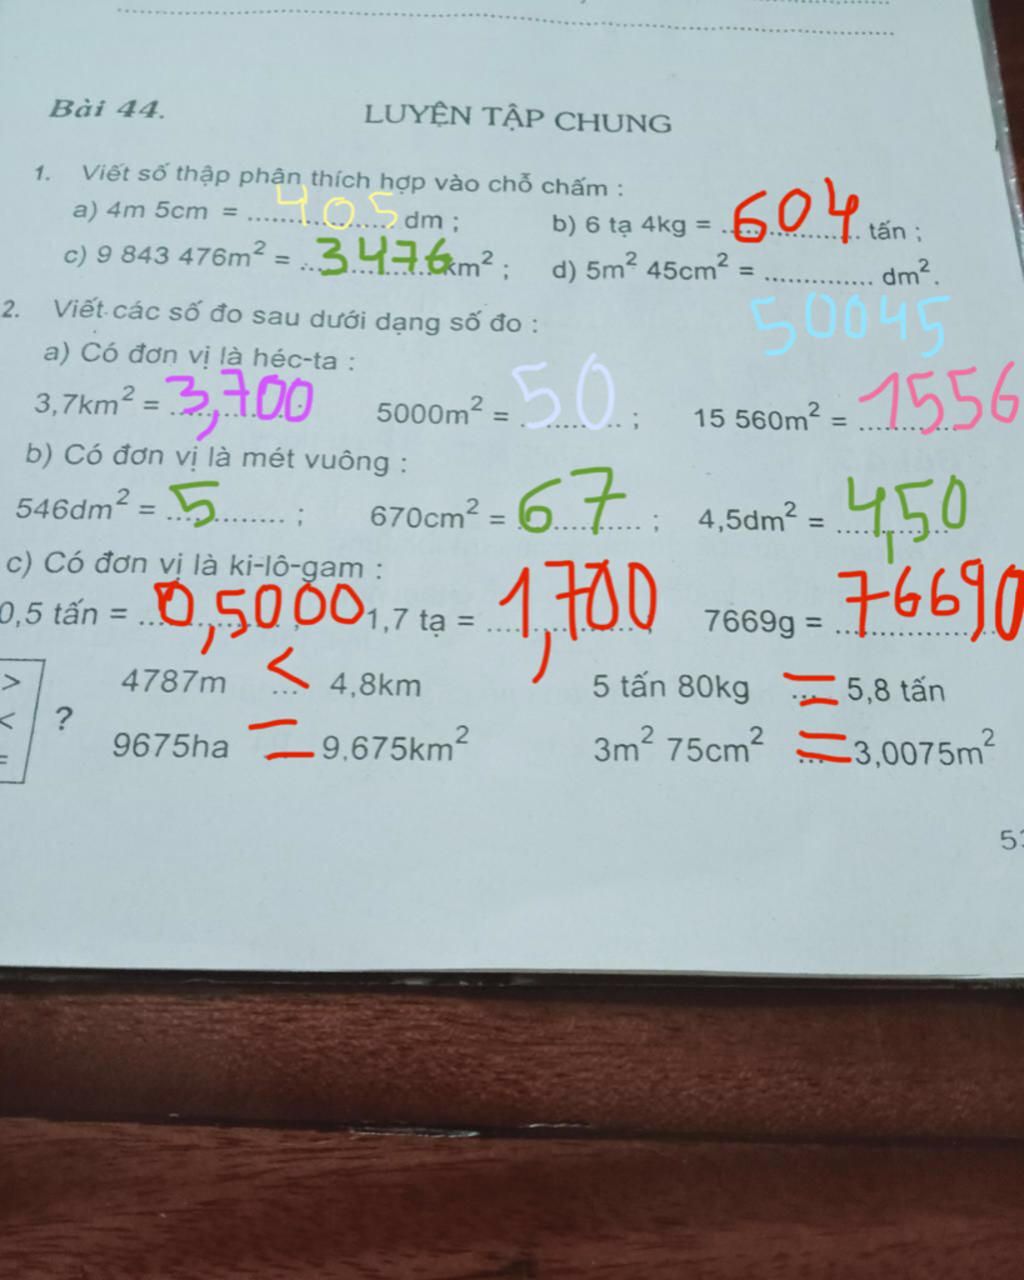 Bài 44. LUYỆN TẬP CHUNG
1. Viết số thập phân thích hợp vào chỗ chấm :
a) 4m 5cm = 405 dm ; b) 6 tạ 4kg = 604 tấn ;
c) 9 843 476m² = 3476 km² ; d) 5m² 45cm² = ............ dm².
50045
2. Viết các số đo sau dưới dạng số đo :
a) Có đơn vị là héc-ta :
3,7km² = 3,700 5000m² = 50 ; 15 560m² = 1556
b) Có đơn vị là mét vuông :
546dm² = 5 ; 670cm² = 67 ; 4,5dm² = 4,50
c) Có đơn vị là ki-lô-gam :
0,5 tấn = 0,5000 1,7 tạ = 1,700 7669g = 76690
> 4787m < 4,8km 5 tấn 80kg = 5,8 tấn
< ?
= 9675ha = 9,675km² 3m² 75cm² = 3,0075m²